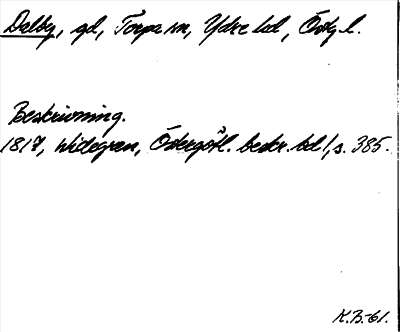 Dalby, gd, Torpa sn, Ydre hd, Östg.l.
Beskrivning.
1817, Widegren, Östergötl. beskr. bd 1, s. 385.
K.B.-61.